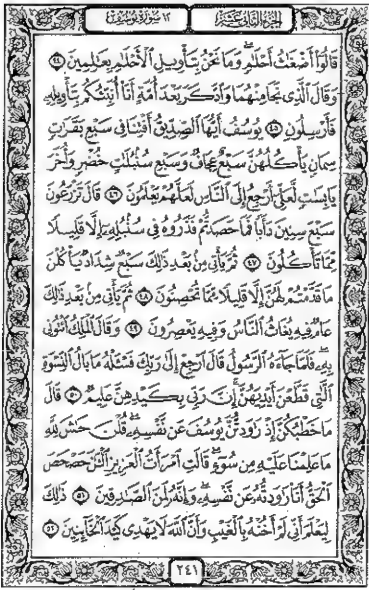 الجزء الثاني عشر
١٢ سورة يوسف
قَالُوٓاْ أَضْغَٰثُ أَحْلَٰمٍۖ وَمَا نَحْنُ بِتَأْوِيلِ ٱلْأَحْلَٰمِ بِعَٰلِمِينَ ٤٤
وَقَالَ ٱلَّذِى نَجَا مِنْهُمَا وَٱدَّكَرَ بَعْدَ أُمَّةٍ أَنَا۠ أُنَبِّئُكُم بِتَأْوِيلِهِۦ
فَأَرْسِلُونِ ٤٥ يُوسُفُ أَيُّهَا ٱلصِّدِّيقُ أَفْتِنَا فِى سَبْعِ بَقَرَٰتٍ
سِمَانٍ يَأْكُلُهُنَّ سَبْعٌ عِجَافٌ وَسَبْعِ سُنۢبُلَٰتٍ خُضْرٍ وَأُخَرَ
يَابِسَٰتٍ لَّعَلِّىٓ أَرْجِعُ إِلَى ٱلنَّاسِ لَعَلَّهُمْ يَعْلَمُونَ ٤٦ قَالَ تَزْرَعُونَ
سَبْعَ سِنِينَ دَأَبًا فَمَا حَصَدتُّمْ فَذَرُوهُ فِى سُنۢبُلِهِۦٓ إِلَّا قَلِيلًا
مِّمَّا تَأْكُلُونَ ٤٧ ثُمَّ يَأْتِى مِنۢ بَعْدِ ذَٰلِكَ سَبْعٌ شِدَادٌ يَأْكُلْنَ
مَا قَدَّمْتُمْ لَهُنَّ إِلَّا قَلِيلًا مِّمَّا تُحْصِنُونَ ٤٨ ثُمَّ يَأْتِى مِنۢ بَعْدِ ذَٰلِكَ
عَامٌ فِيهِ يُغَاثُ ٱلنَّاسُ وَفِيهِ يَعْصِرُونَ ٤٩ وَقَالَ ٱلْمَلِكُ ٱئْتُونِى
بِهِۦۖ فَلَمَّا جَآءَهُ ٱلرَّسُولُ قَالَ ٱرْجِعْ إِلَىٰ رَبِّكَ فَسْـَٔلْهُ مَا بَالُ ٱلنِّسْوَةِ
ٱلَّٰتِى قَطَّعْنَ أَيْدِيَهُنَّۚ إِنَّ رَبِّى بِكَيْدِهِنَّ عَلِيمٌ ٥٠ قَالَ
مَا خَطْبُكُنَّ إِذْ رَٰوَدتُّنَّ يُوسُفَ عَن نَّفْسِهِۦۚ قُلْنَ حَٰشَ لِلَّهِ
مَا عَلِمْنَا عَلَيْهِ مِن سُوٓءٍۚ قَالَتِ ٱمْرَأَتُ ٱلْعَزِيزِ ٱلْـَٰٔنَ حَصْحَصَ
ٱلْحَقُّ أَنَا۠ رَٰوَدتُّهُۥ عَن نَّفْسِهِۦ وَإِنَّهُۥ لَمِنَ ٱلصَّٰدِقِينَ ٥١ ذَٰلِكَ
لِيَعْلَمَ أَنِّى لَمْ أَخُنْهُ بِٱلْغَيْبِ وَأَنَّ ٱللَّهَ لَا يَهْدِى كَيْدَ ٱلْخَآئِنِينَ ٥٢
٢٤١